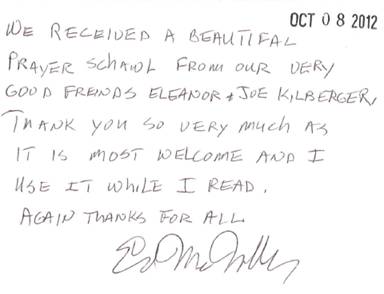 OCT 08 2012
WE RECEIVED A BEAUTIFAL
PRAYER SCHAWL FROM OUR VERY
GOOD FRENDS ELEANOR & JOE KILBERGER,
THANK YOU SO VERY MUCH AS
IT IS MOST WELCOME AND I
USE IT WHILE I READ.
AGAIN THANKS FOR ALL